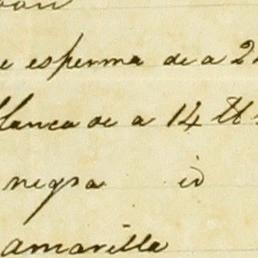 e esperma de a 2
blanca de a 14 ℔
negra id
amarilla